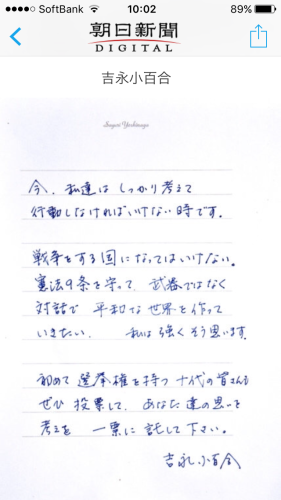 SoftBank 10:02 89%
朝日新聞
DIGITAL
吉永小百合
Sayuri Yoshinaga
今、私達は しっかり考えて
行動しなければいけない時です。
戦争をする国になってはいけない。
憲法9条を守って、武器ではなく
対話で 平和な世界を作って
いきたい。 私は強くそう思います。
初めて選挙権を持つ十代の皆さんも
ぜひ投票して、あなた達の思いと
考えを 一票に託して下さい。
吉永小百合